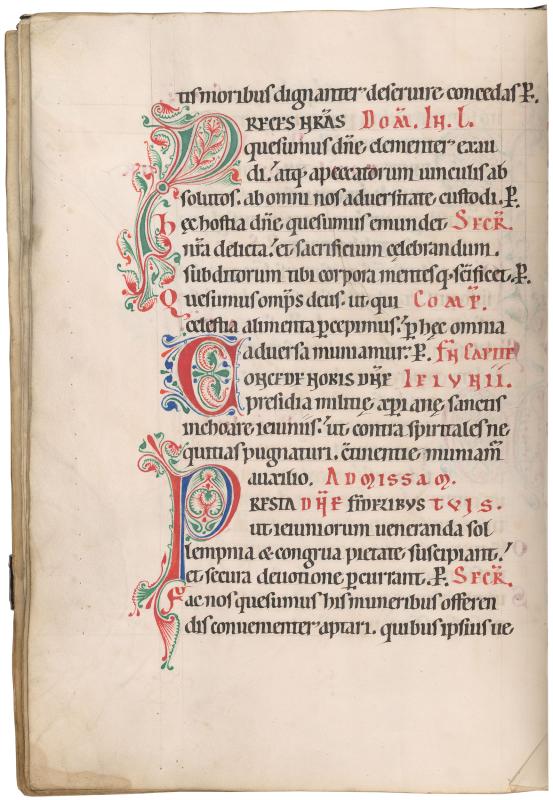 tis moribus dignanter deseruire concedas P̄.
PRECES NR̄AS DOM̄. IN. L.
quesumus dn̄e clementer exau
di. atq; apeccatorum uinculis ab
solutos. ab omni nos aduersitate custodi. P̄.
hęc hostia dn̄e quesumus emundet SECR̄.
nr̄a delicta. et sacrificium cęlebrandum.
subditorum tibi corpora mentesq; sc̄ificet. P̄.
Quesumus omp̄s deus. ut qui COMP̄.
cęlestia alimenta ꝑcepimus. ꝑ hęc omnia
aduersa muniamur. P̄. IN CAPITE
CONCEDE NOBIS DN̄E IEIVNII.
presidia militię xp̄ianę sanctis
inchoare ieiuniis. ut contra spiritales ne
quitias pugnaturi. c̄tinentie muniam̄
auxilio. AD MISSAM.
PRESTA DN̄E FIDELIBVS TVIS.
ut ieiuniorum ueneranda sol
lempnia & congrua pietate suscipiant.
et secura deuotione ꝑcurrant. P̄. SECR̄.
Fac nos quesumus his muneribus offeren
dis conuenienter aptari. quibus ipsius ue